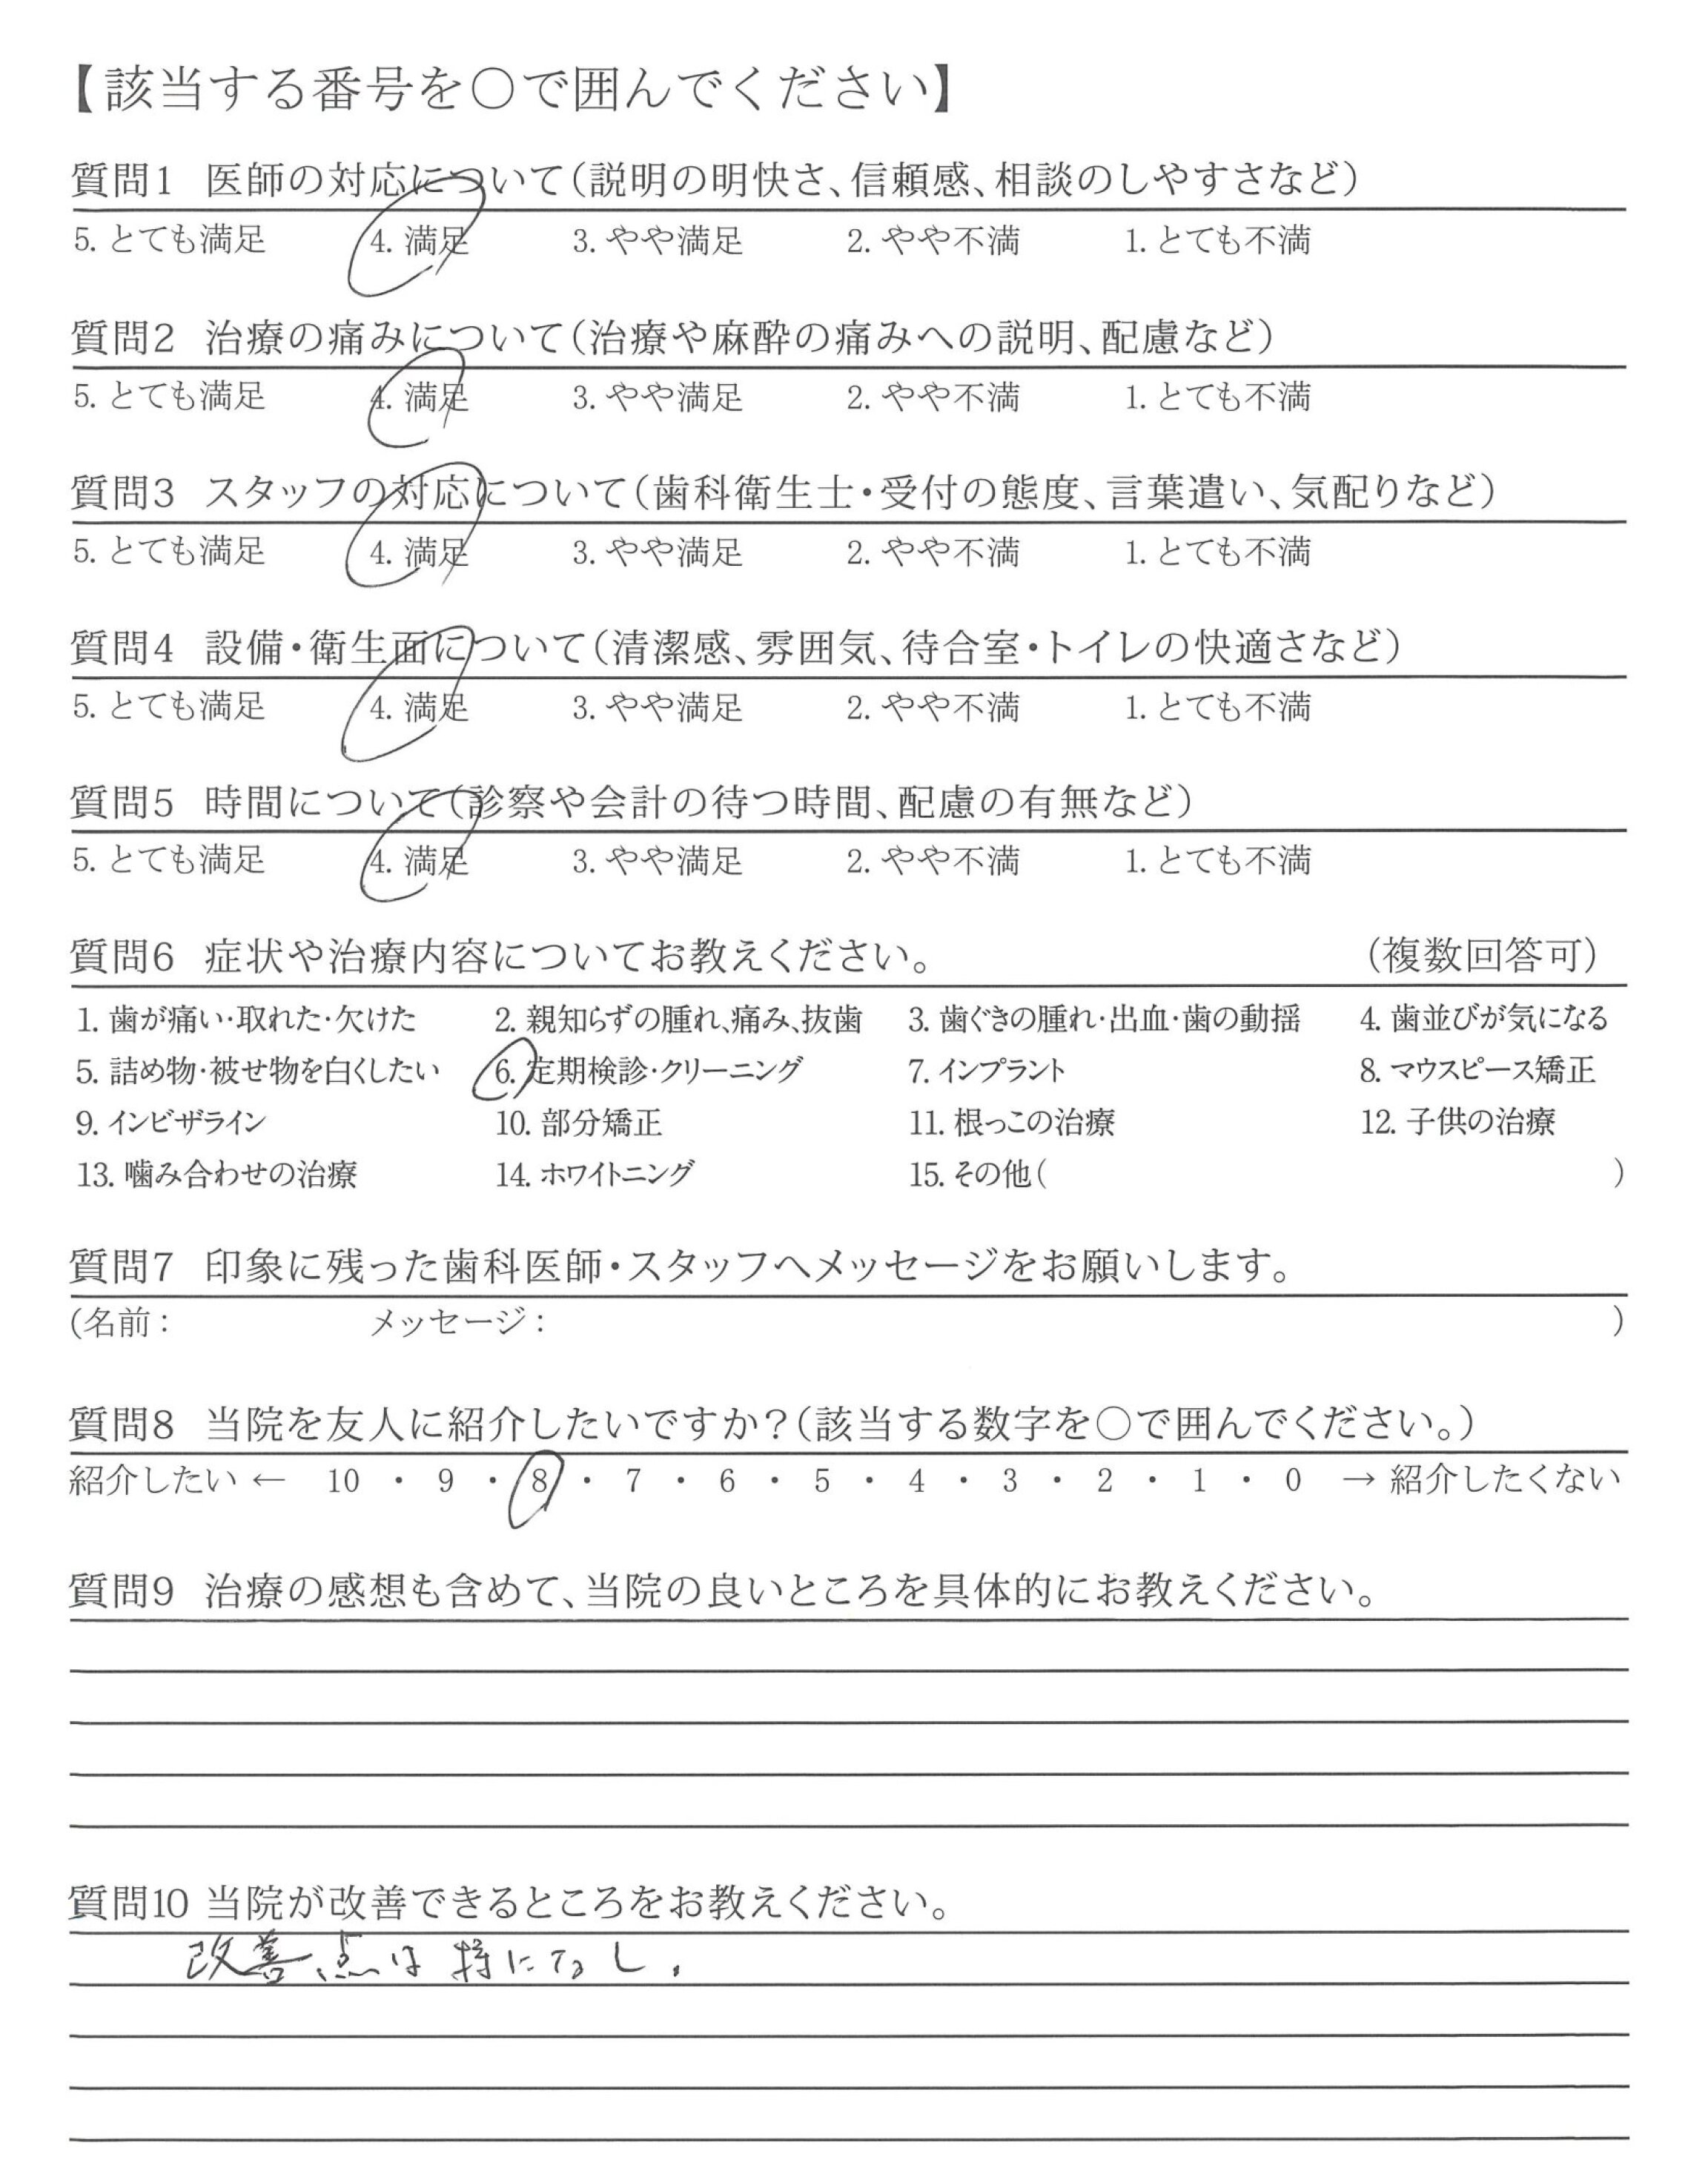 【該当する番号を○で囲んでください】
質問1 医師の対応について(説明の明快さ、信頼感、相談のしやすさなど)
5. とても満足 4. 満足 3. やや満足 2. やや不満 1. とても不満
質問2 治療の痛みについて(治療や麻酔の痛みへの説明、配慮など)
5. とても満足 4. 満足 3. やや満足 2. やや不満 1. とても不満
質問3 スタッフの対応について(歯科衛生士・受付の態度、言葉遣い、気配りなど)
5. とても満足 4. 満足 3. やや満足 2. やや不満 1. とても不満
質問4 設備・衛生面について(清潔感、雰囲気、待合室・トイレの快適さなど)
5. とても満足 4. 満足 3. やや満足 2. やや不満 1. とても不満
質問5 時間について(診察や会計の待つ時間、配慮の有無など)
5. とても満足 4. 満足 3. やや満足 2. やや不満 1. とても不満
質問6 症状や治療内容についてお教えください。 (複数回答可)
1. 歯が痛い・取れた・欠けた 2. 親知らずの腫れ、痛み、抜歯 3. 歯ぐきの腫れ・出血・歯の動揺 4. 歯並びが気になる
5. 詰め物・被せ物を白くしたい 6. 定期検診・クリーニング 7. インプラント 8. マウスピース矯正
9. インビザライン 10. 部分矯正 11. 根っこの治療 12. 子供の治療
13. 噛み合わせの治療 14. ホワイトニング 15. その他( )
質問7 印象に残った歯科医師・スタッフへメッセージをお願いします。
(名前: メッセージ: )
質問8 当院を友人に紹介したいですか?(該当する数字を○で囲んでください。)
紹介したい ← 10 ・ 9 ・ 8 ・ 7 ・ 6 ・ 5 ・ 4 ・ 3 ・ 2 ・ 1 ・ 0 → 紹介したくない
質問9 治療の感想も含めて、当院の良いところを具体的にお教えください。
質問10 当院が改善できるところをお教えください。
改善点は特になし.